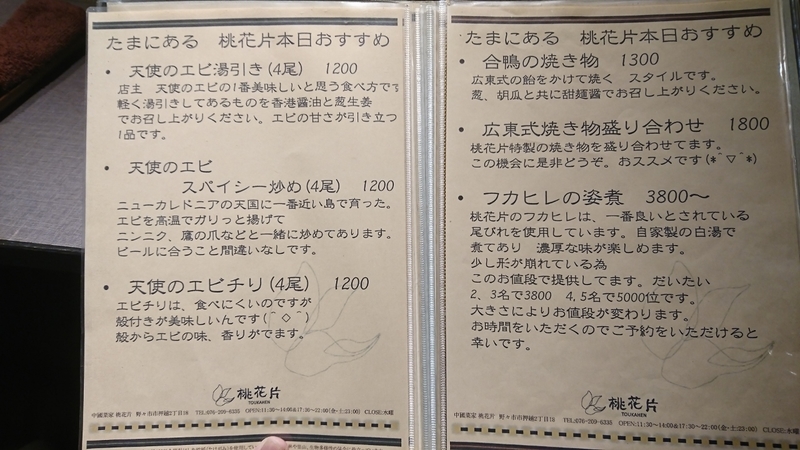 たまにある　桃花片本日おすすめ
・ 天使のエビ湯引き(4尾)　1200
店主　天使のエビの1番美味しいと思う食べ方です
軽く湯引きしてあるものを香港醤油と葱生姜
でお召し上がりください。エビの甘さが引き立つ
1品です。
・ 天使のエビ
スパイシー炒め(4尾)　1200
ニューカレドニアの天国に一番近い島で育った。
エビを高温でガリっと揚げて
ニンニク、鷹の爪などと一緒に炒めてあります。
ビールに合うこと間違いなしです。
・ 天使のエビチリ(4尾)　1200
エビチリは、食べにくいのですが
殻付きが美味しいんです(＾◇＾)
殻からエビの味、香りがでます。
桃花片
TOUKAHEN
中國菜家 桃花片　野々市市押越2丁目18　TEL:076-209-6335　OPEN:11:30～14:00&17:30～22:00(金・土:23:00)　CLOSE:水曜
たまにある　桃花片本日おすすめ
・ 合鴨の焼き物　1300
広東式の飴をかけて焼く　スタイルです。
葱、胡瓜と共に甜麺醤でお召し上がりください。
・ 広東式焼き物盛り合わせ　1800
桃花片特製の焼き物を盛り合わせてます。
この機会に是非どうぞ。おススメです(*^▽^*)
・ フカヒレの姿煮　3800～
桃花片のフカヒレは、一番良いとされている
尾びれを使用しています。自家製の白湯で
煮てあり　濃厚な味が楽しめます。
少し形が崩れている為
このお値段で提供してます。だいたい
2、3名で3800　4,5名で5000位です。
大きさによりお値段が変わります。
お時間をいただくのでご予約をいただけると
幸いです。
桃花片
TOUKAHEN
中國菜家 桃花片　野々市市押越2丁目18　TEL:076-209-6335　OPEN:11:30～14:00&17:30～22:00(金・土:23:00)　CLOSE:水曜